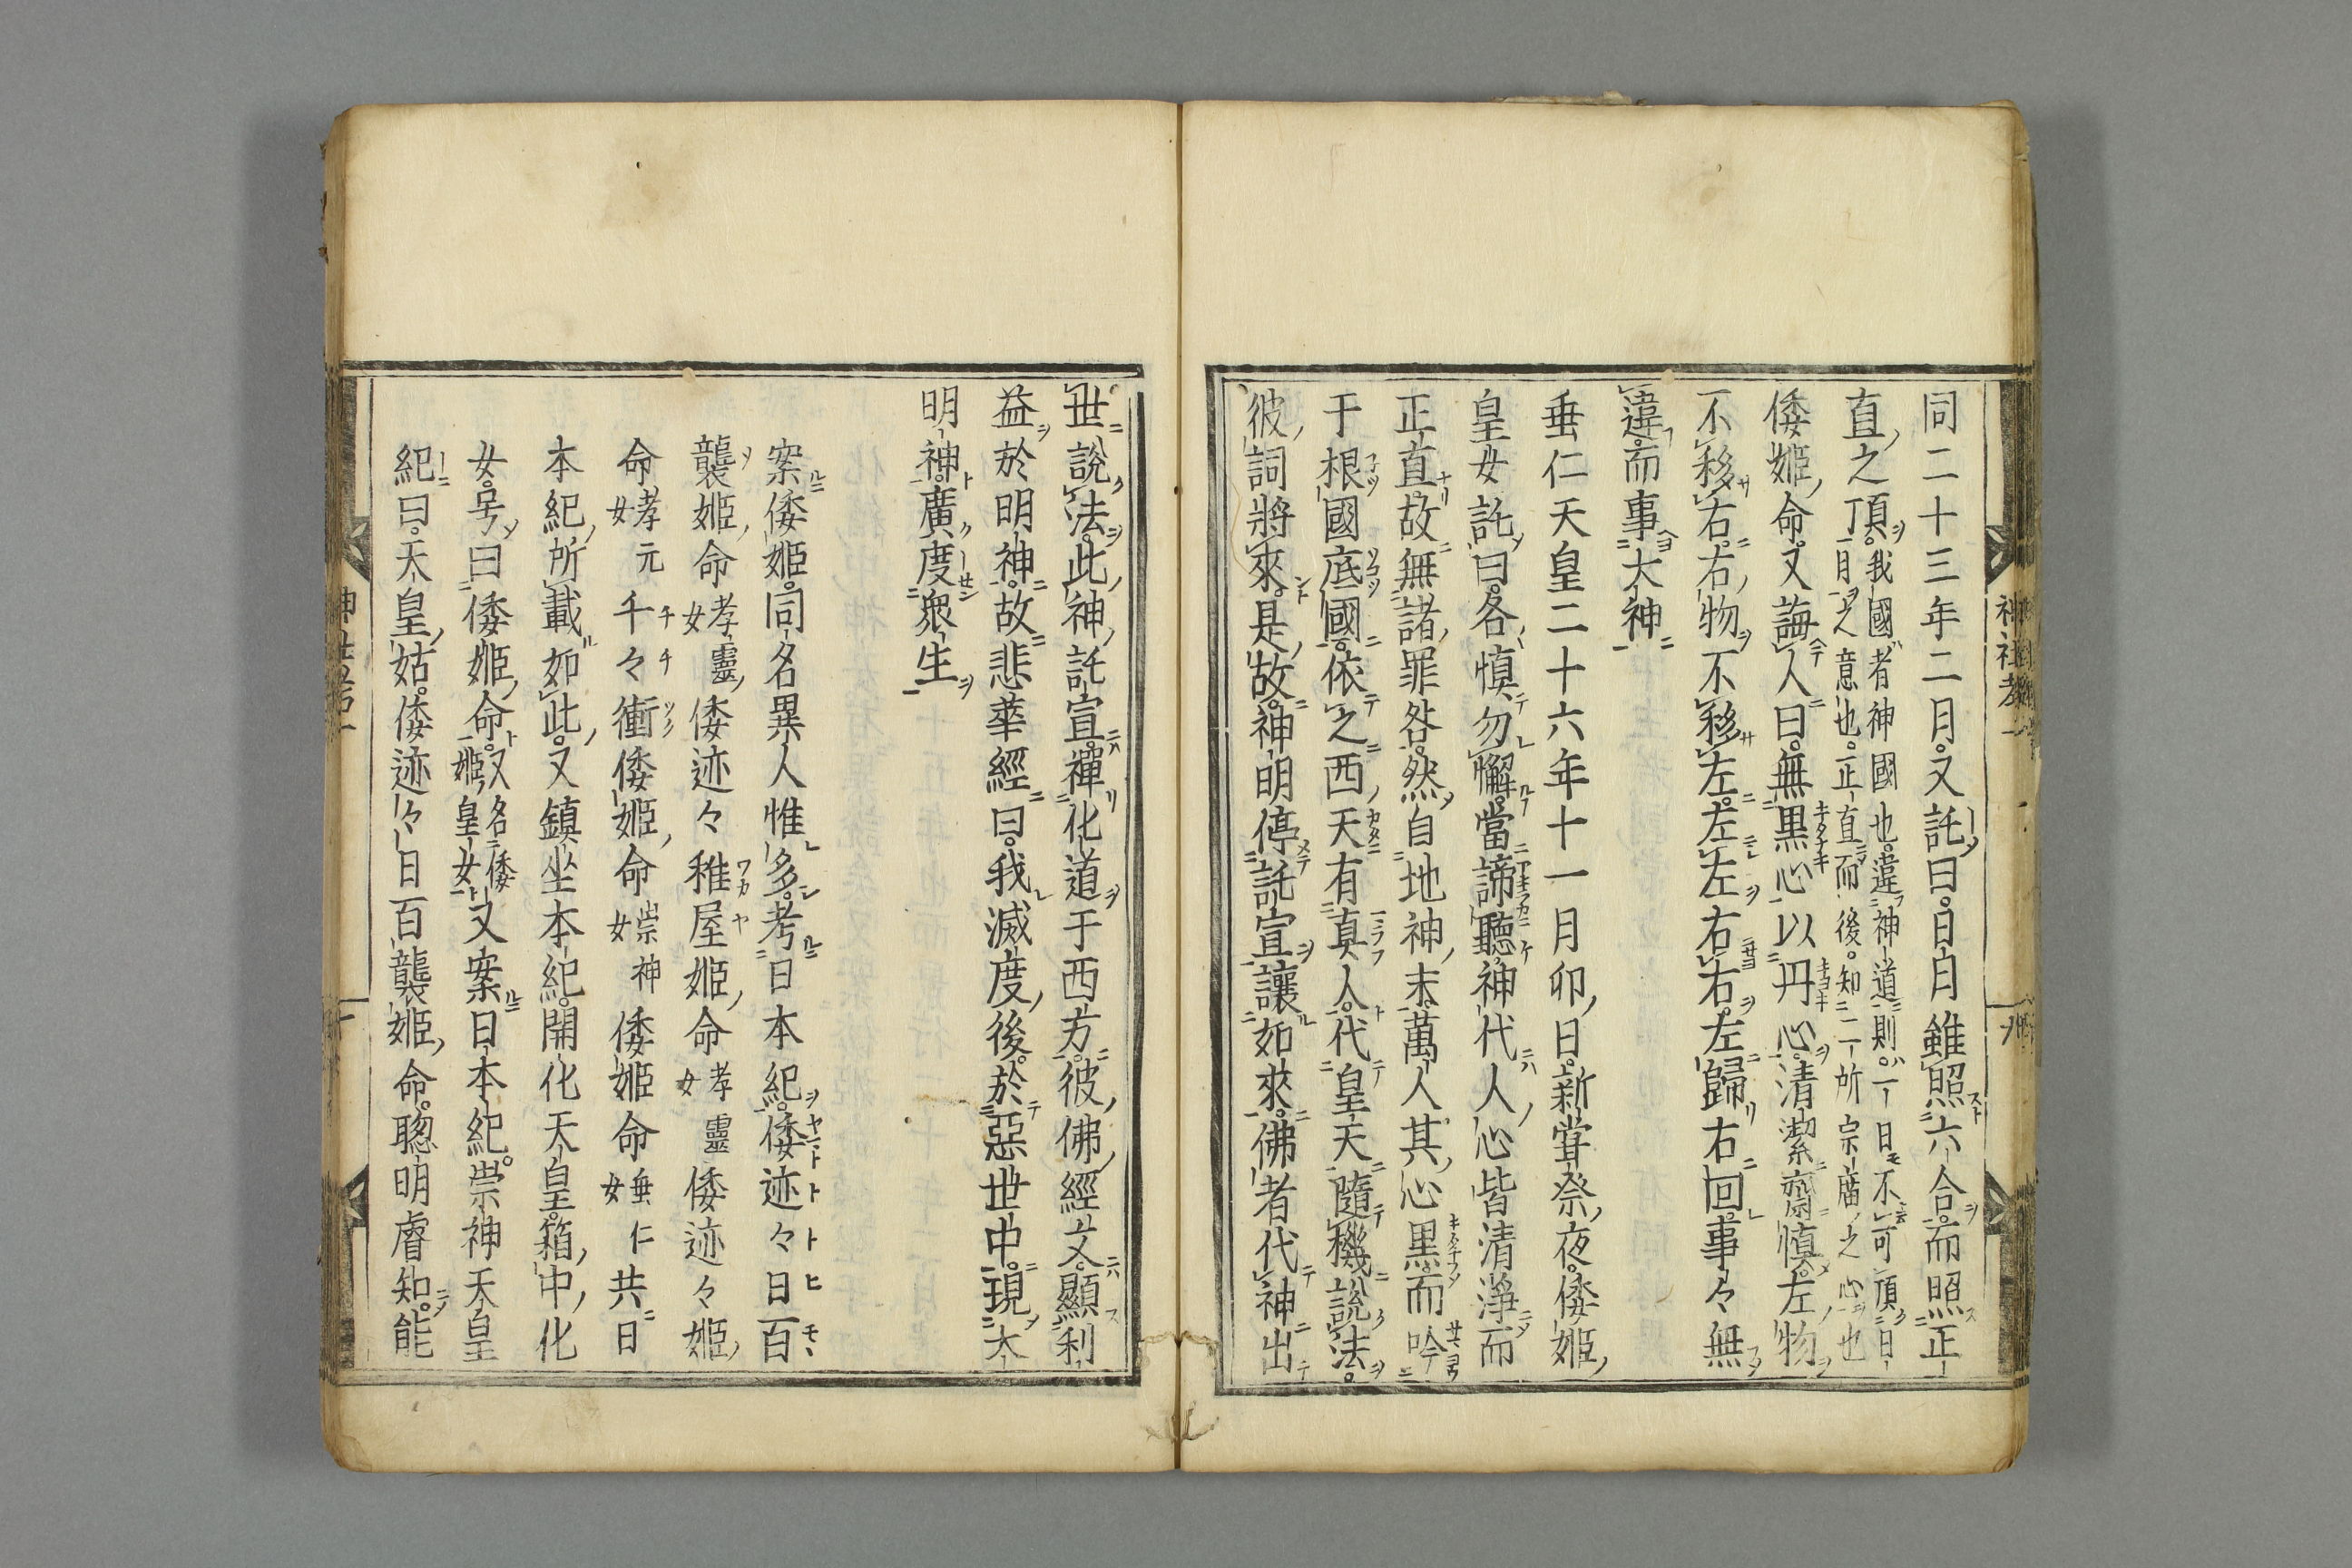 同二十三年二月。又託曰。日月雖照六合。而照正
直之頂。我國者神國也。違神道則。一日不可頂日
丁月之意也。正直而後。知二所宗廟之心也
倭姬命。又誨人曰。無黒心以丹心。清潔齋慎。左物
不移右。右物不移左。左左右右。左歸右回。事々無
違。而事大神
垂仁天皇二十六年十一月卯日。新甞祭夜。倭姬
皇女託曰。各慎勿懈。當諦聽。神代人心皆清淨而
正直。故無諸罪咎。然自地神末。萬人其心黒。而吟
于根國底國。依之西天有真人。代皇天隨機說法。
彼詞將來。是故。神明停託宣讓如來。佛者代神出
世說法。此神託宣禪化道于西方。彼佛經文。顯利
益於明神。故悲華經曰。我滅度後。於惡世中。現大
明神。廣度衆生
案倭姬。同名異人惟多。考日本紀。倭迹々日百
襲姬命孝靈女倭迹々稚屋姬命孝靈女倭迹々姬
命孝元女千々衝倭姬命崇神女倭姬命垂仁女共日
本紀所載如此。又鎮坐本紀。開化天皇。箱中化
女。号曰倭姬命。又名倭姬皇女又案日本紀。崇神天皇
紀曰。天皇姑。倭迹々日百襲姬命。聰明睿知。能
神社考一
九